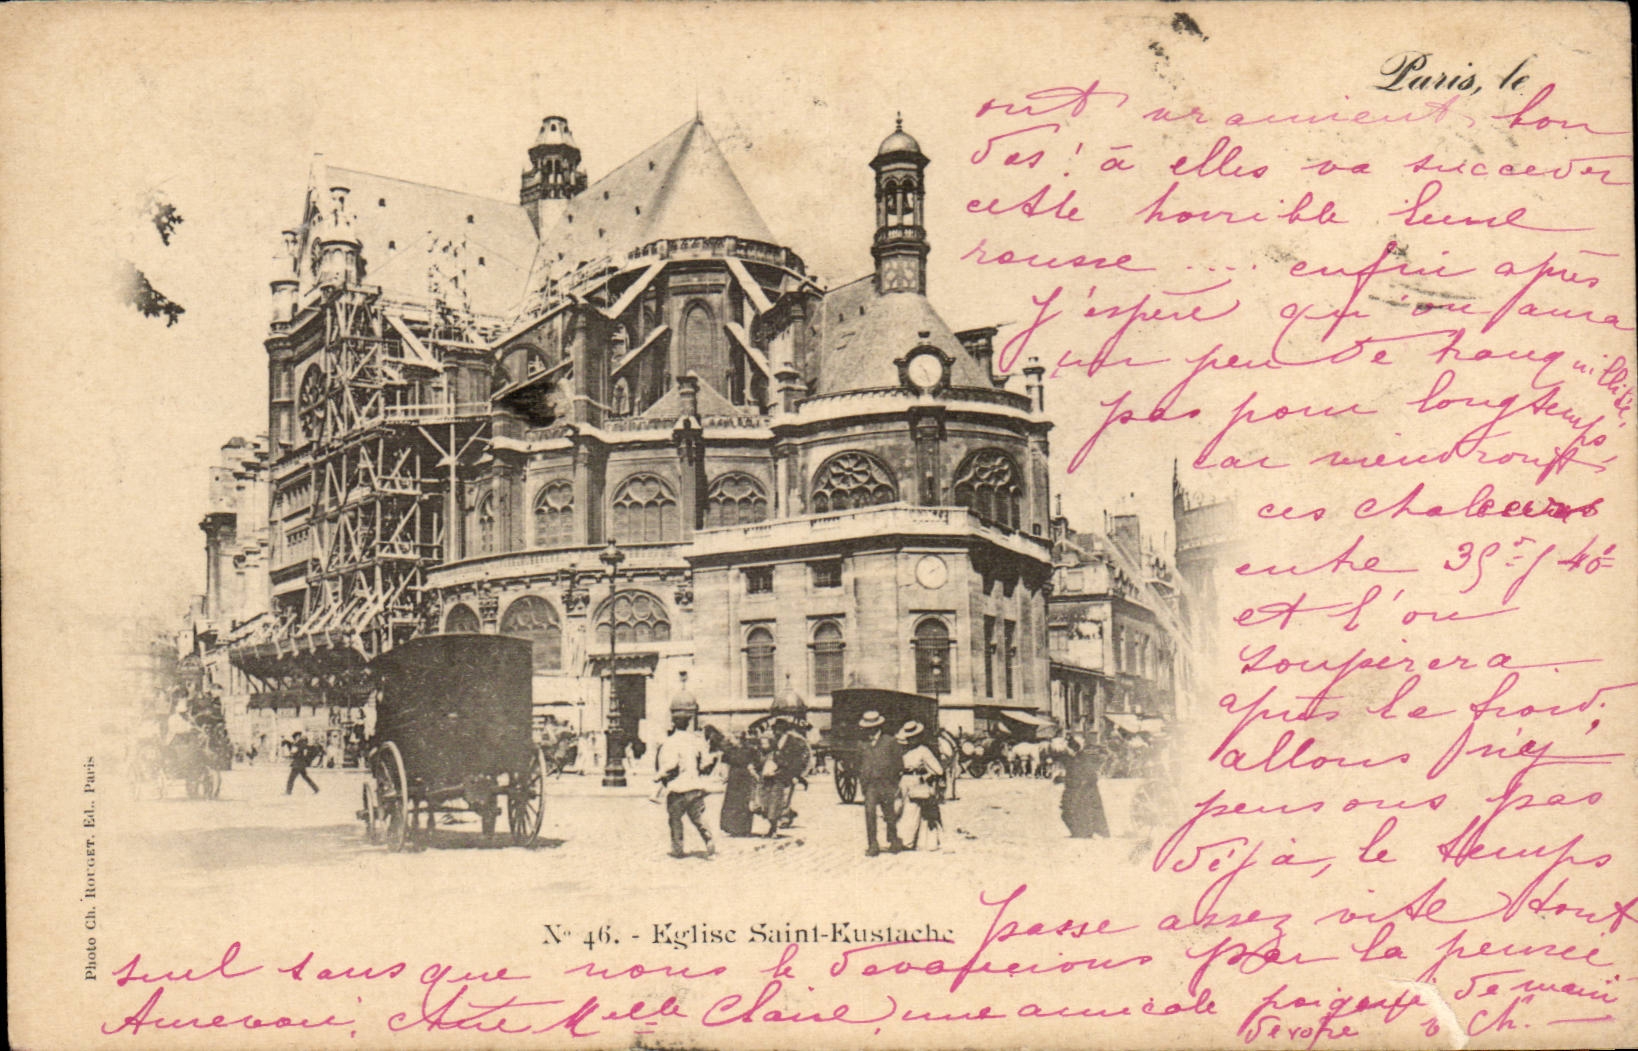 Paris, le
ont vraiment bon
dos! à elles va succeder
cette horrible lune
rousse .... enfin après
j'espère qu'on aura
un peu de tranquillité,
pas pour longtemps
car viendront
ces chaleurs
entre 35° / 40°
et l'on
soupirera
après le froid;
allons n'y
pensons pas
déjà, le temps
passe assez vite tout
seul sans que nous le devancions par la pensée
Aurevoir, chère Melle Claire, une amicale poignée de main
de votre Ch.
Nº 46. - Eglise Saint-Eustache
Photo Ch. ROUGET. Ed.. Paris